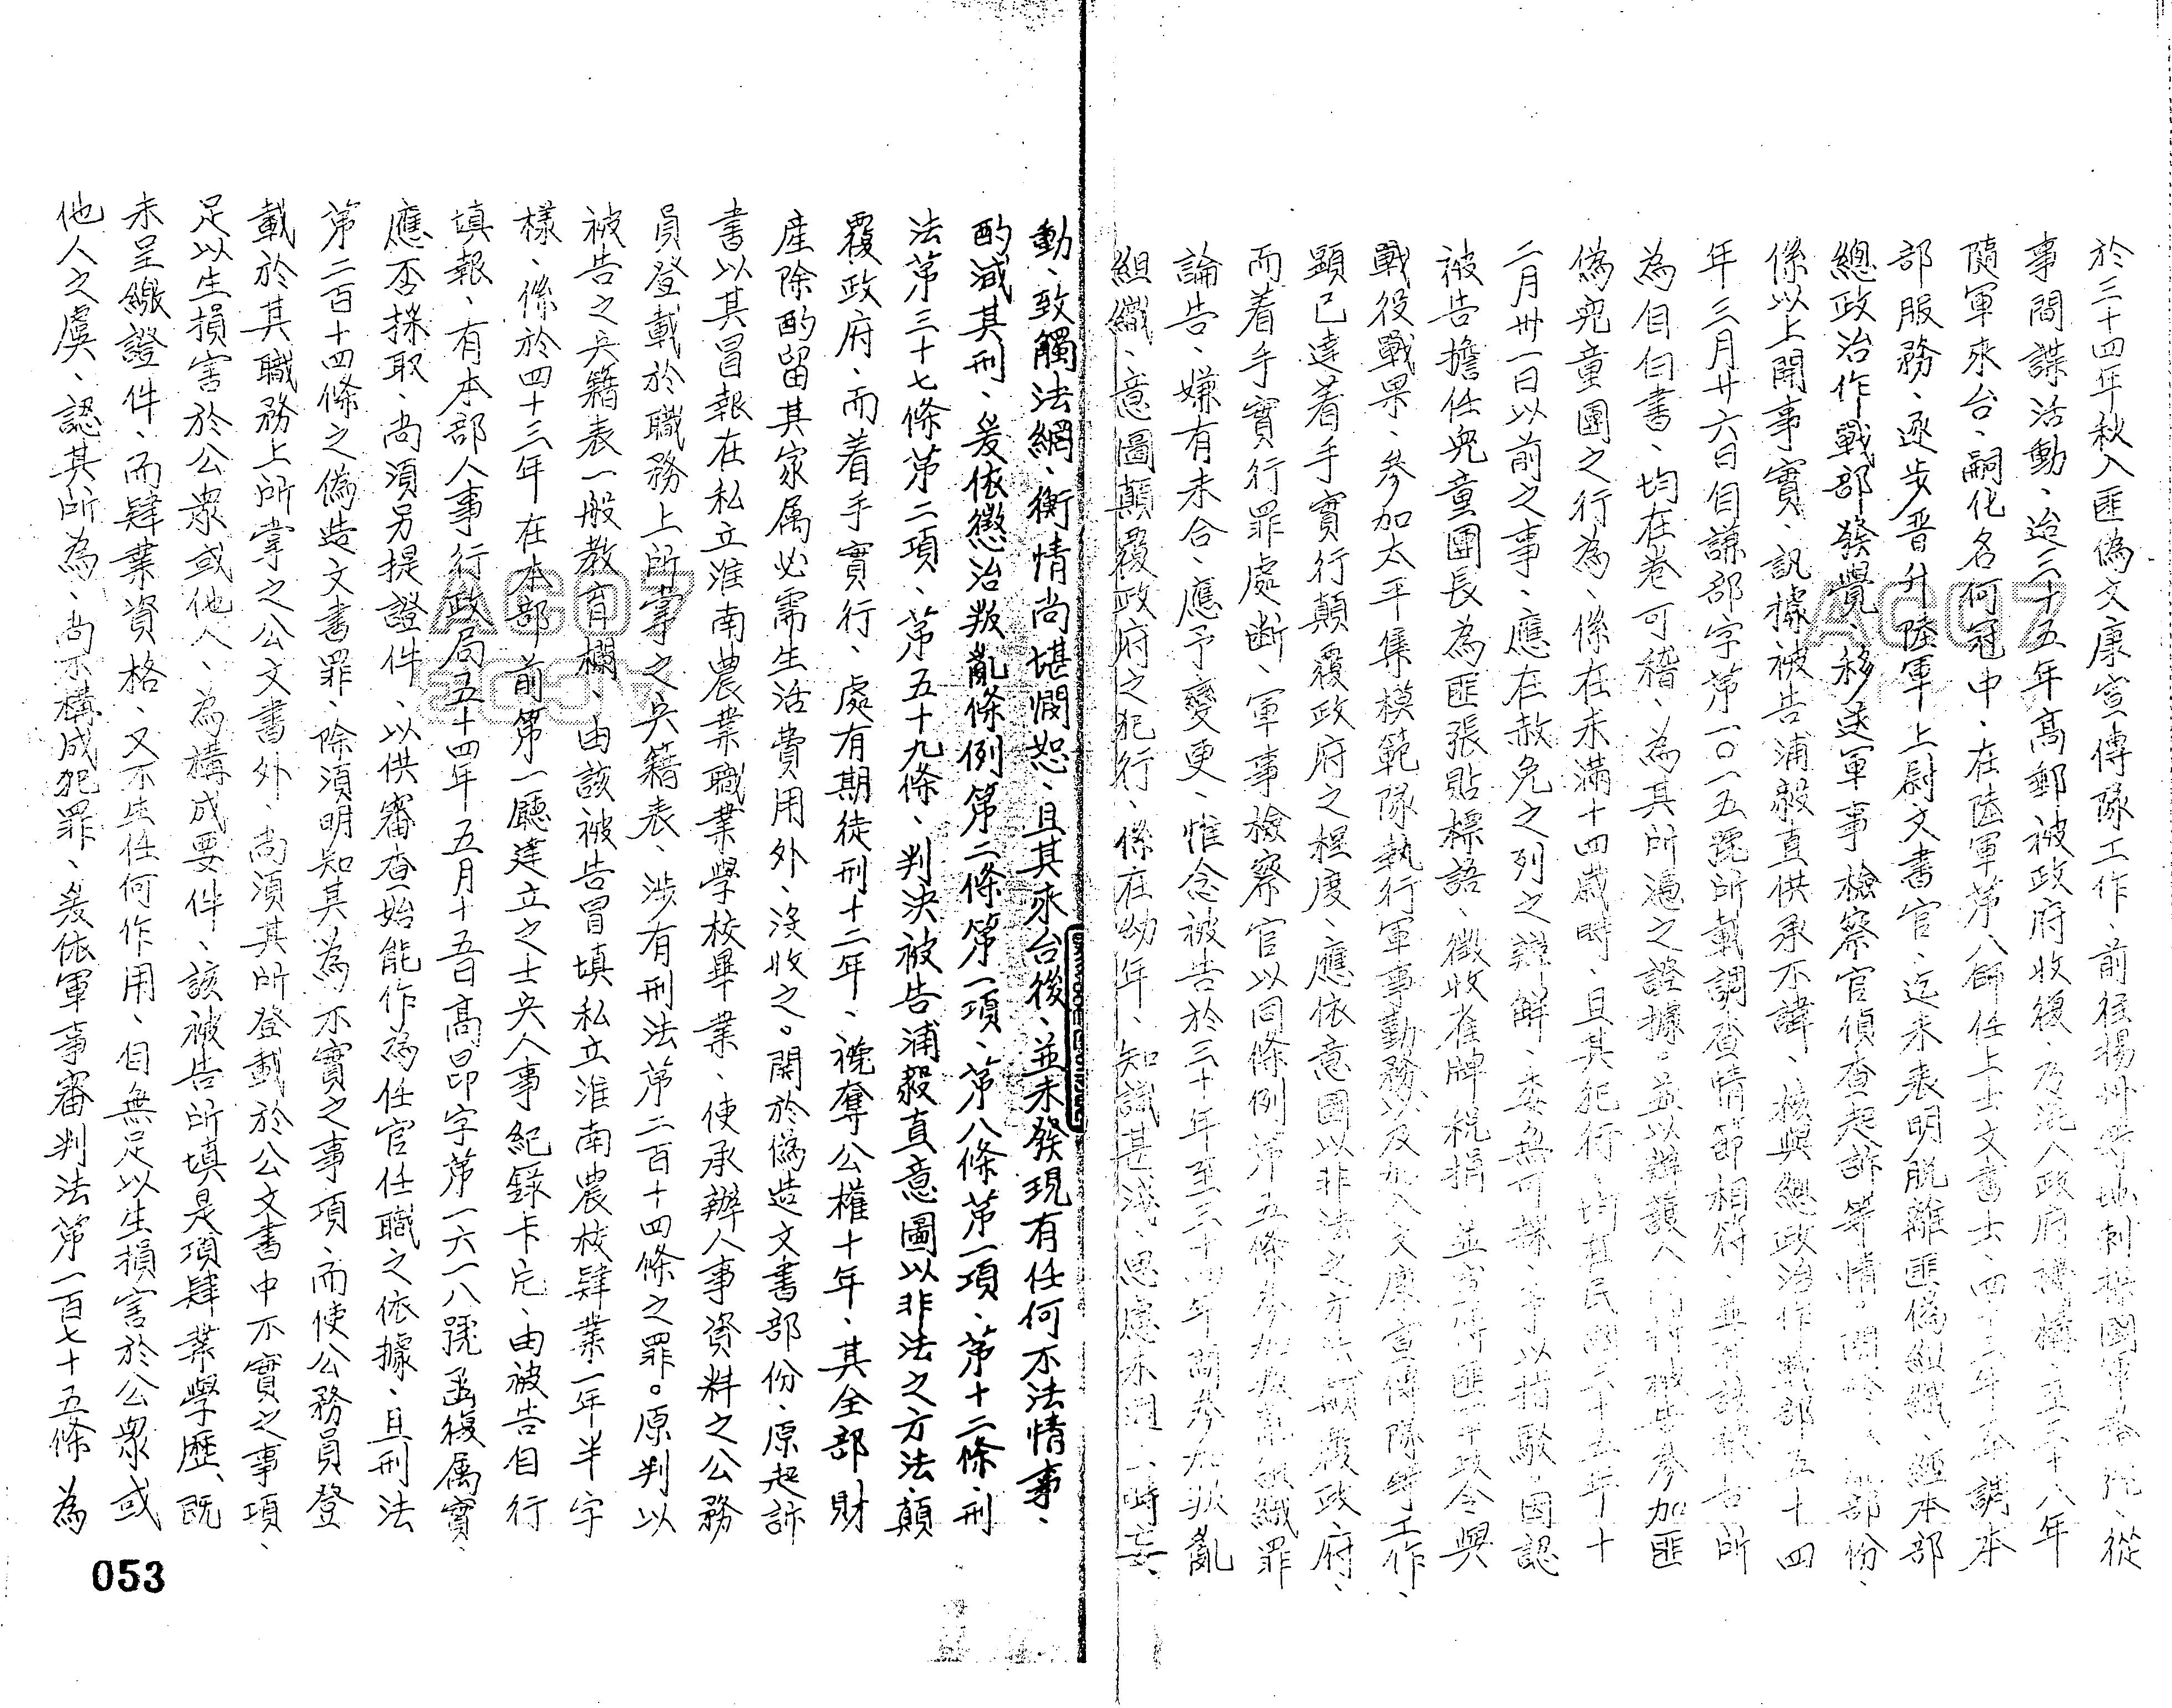 於三十四年秋入匪偽文康宣傳隊工作、前往揚州等地刺探國軍番號、從
事間諜活動、迨三十五年高郵被政府收復、乃混入政府機構、至三十八年
隨軍來台、嗣化名何冠中、在陸軍第八師任上士文書士、四十三年奉調本
部服務、逐步晋升陸軍上尉文書官、迄未表明脱離匪偽組織、經本部
總政治作戰部發覺、移送軍事檢察官偵查起訴等情。關於、一部份、
係以上開事實、訊據被告浦毅直供承不諱、核與總政治作戰部五十四
年三月廿六日自謙部字第一〇一五號所載調查情節相符、並有該被告所
為自白書、均在卷可稽、為其所過之證據。並以辯護人、被告參加匪
偽兒童團之行為、係在未滿十四歲時、且其犯行、均在民國三十五年十
二月卅一日以前之事、應在赦免之列之辯解、委無可採、予以指駁、因認
被告擔任兒童團長為匪張貼標語、徵收雀牌稅捐、並宣傳匪干政令與
戰役戰果、參加太平集模範隊執行軍事勤務以及加入文康宣傳隊等工作、
顯已達着手實行顛覆政府之程度、應依意圖以非法之方法顛覆政府、
而着手實行罪處斷、軍事檢察官以同條例第五條參加叛亂組織罪
論告、嫌有未合、應予變更、惟念被告於三十年至三十四年間參加叛亂
組織、意圖顛覆政府之犯行、係在幼年、知識甚淺、思慮未周、一時妄
動、致觸法網、衡情尚堪憫恕、且其來台後、並未發現有任何不法情事、
酌減其刑、爰依懲治叛亂條例第二條第一項、第八條第一項、第十二條、刑
法第三十七條第二項、第五十九條、判決被告浦毅直意圖以非法之方法、顛
覆政府、而着手實行、處有期徒刑十二年、褫奪公權十年、其全部財
產除酌留其家属必需生活費用外、沒收之。關於偽造文書部份、原起訴
書以其冒報在私立淮南農業職業學校畢業、使承辦人事資料之公務
員登載於職務上所掌之兵籍表、涉有刑法第二百十四條之罪。原判以
被告之兵籍表一般教育欄、由該被告冒填私立淮南農校肄業一年半字
樣、係於四十三年在本部前第一廳建立之士兵人事紀錄卡片、由被告自行
填報、有本部人事行政局五十四年五月十五日高昂字第一六一八號函復属實、
應否採取、尚須另提證件、以供審查始能作為任官任職之依據、且刑法
第二百十四條之偽造文書罪、除須明知其為不實之事項、而使公務員登
載於其職務上所掌之公文書外、尚須其所登載於公文書中不實之事項、
足以生損害於公眾或他人、為構成要件、該被告所填是項肄業學歷、既
未呈繳證件、而肄業資格、又不生任何作用、自無足以生損害於公眾或
他人之虞、認其所為、尚不構成犯罪、爰依軍事審判法第一百七十五條為
053
AC07
AC07